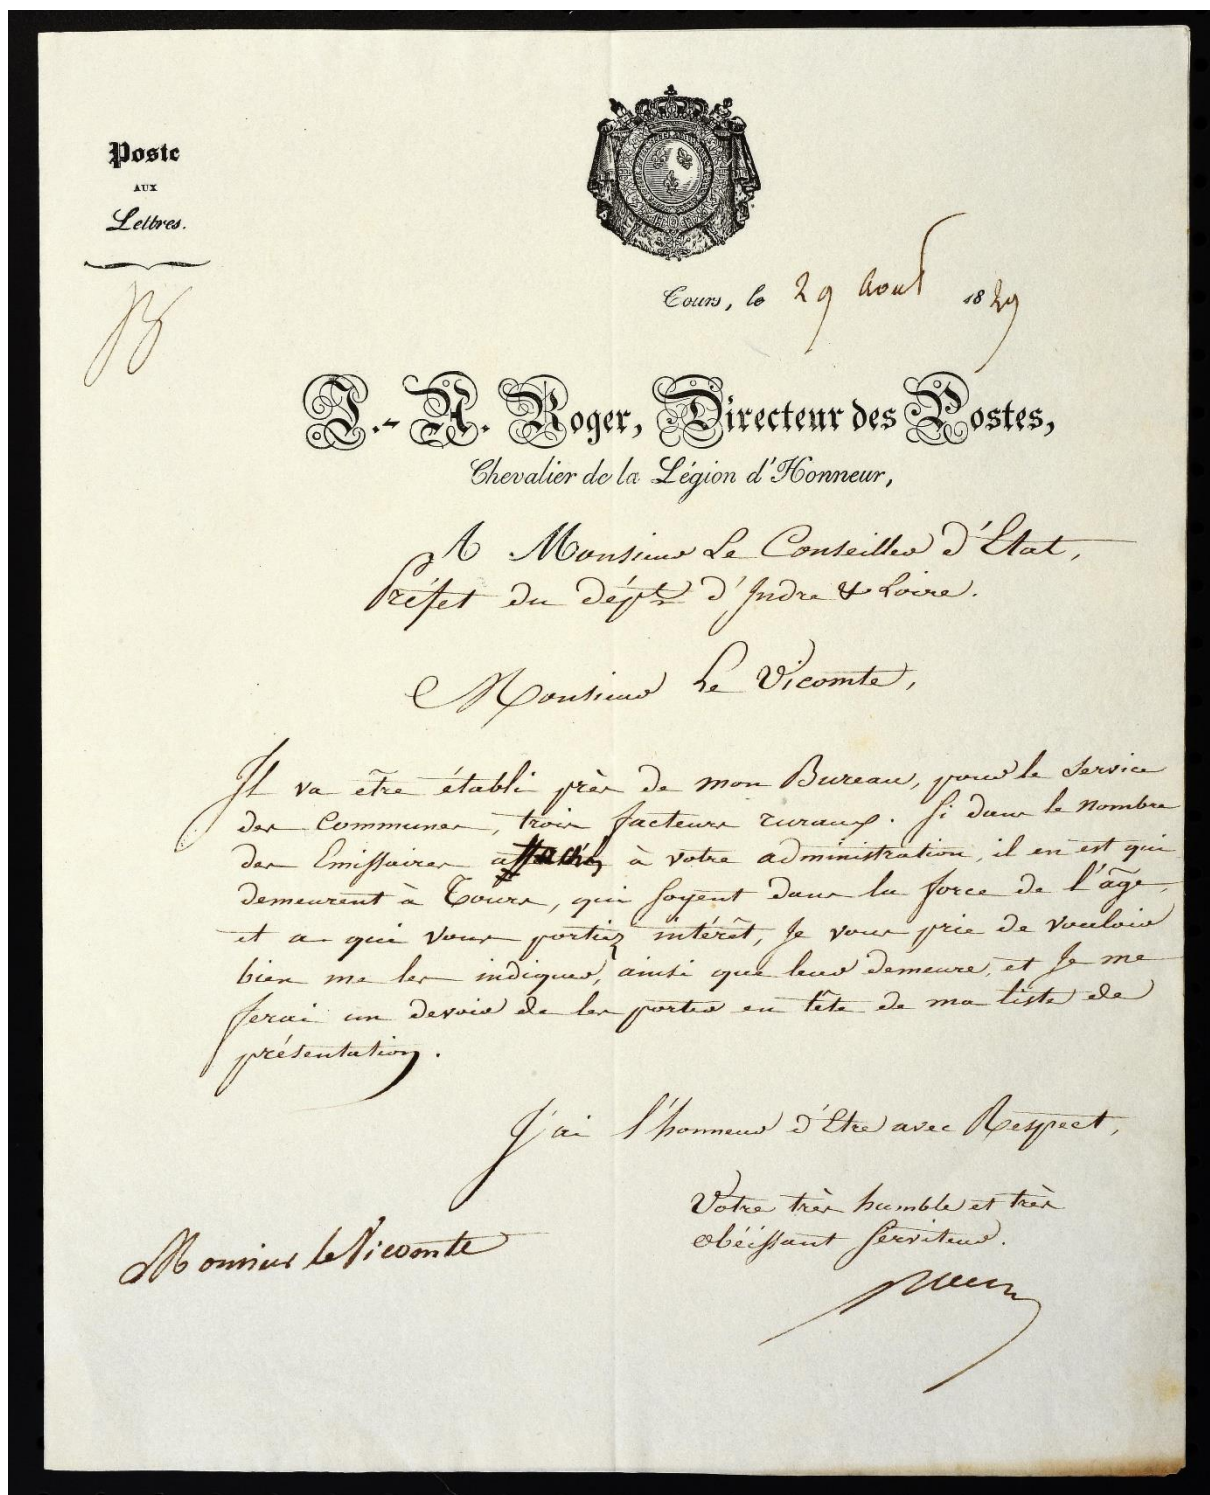 Poste
AUX
Lettres.
Tours, le 29 Aout 1829
J.-A. Roger, Directeur des Postes,
Chevalier de la Légion d'Honneur,
A Monsieur Le Conseiller d'Etat,
Préfet du dépt d'Indre & Loire.
Monsieur Le Vicomte,
Il va être établi près de mon Bureau, pour le service
des Communes, trois facteurs ruraux. Si dans le nombre
des Emissaires attachés à votre administration, il en est qui
demeurent à Tours, qui soyent dans la force de l'âge,
et a qui vous portiez intérêt, Je vous prie de vouloir
bien me les indiquer, ainsi que leur demeure, et Je me
ferai un devoir de les porter en tête de ma liste de
présentation.
J'ai l'honneur d'Etre avec Respect,
Votre très humble et très
obéissant Serviteur.
Monsieur le Vicomte